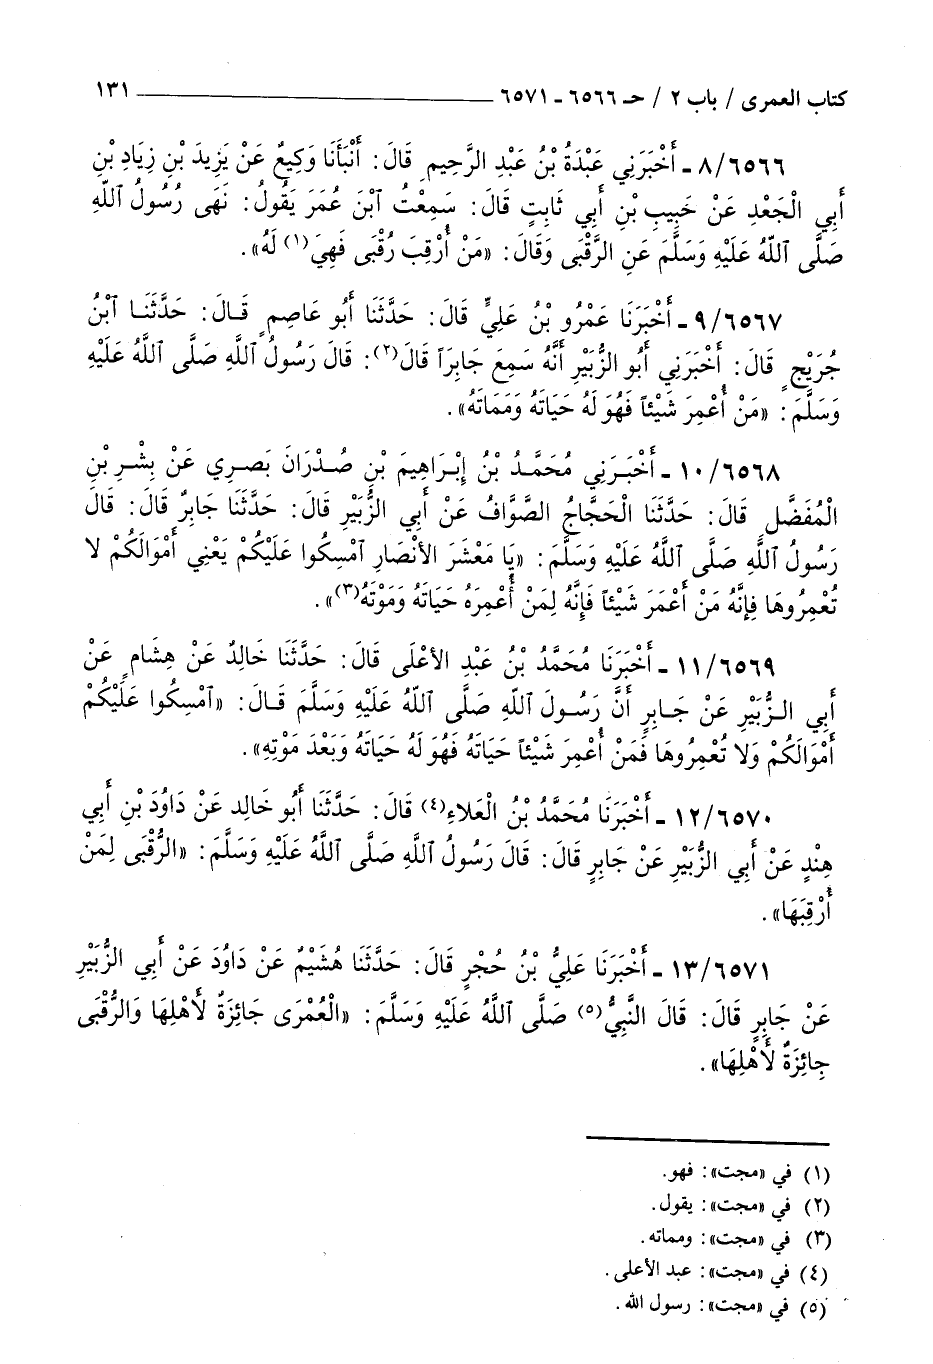 كتاب العمرى / باب ٢ / حـ ٦٥٦٦ - ٦٥٧١ ١٣١
٨/٦٥٦٦ - أَخْبَرَنِي عَبْدَةُ بْنُ عَبْدِ الرَّحِيمِ قَالَ: أَنْبَأَنَا وَكِيعٌ عَنْ يَزِيدَ بْنِ زِيَادِ بْنِ
أَبِي الْجَعْدِ عَنْ حَبِيبِ بْنِ أَبِي ثَابِتٍ قَالَ: سَمِعْتُ ٱبْنَ عُمَرَ يَقُولُ: نَهَى رُسُولُ ٱللَّهِ
صَلَّى ٱللَّهُ عَلَيْهِ وَسَلَّمَ عَنِ الرُّقْبَى وَقَالَ: «مَنْ أُرْقِبَ رُقْبَى فَهِيَ(١) لَهُ».
٩/٦٥٦٧ - أَخْبَرَنَا عَمْرُو بْنُ عَلِيٍّ قَالَ: حَدَّثَنَا أَبُو عَاصِمٍ قَالَ: حَدَّثَنَا ٱبْنُ
جُرَيْجٍ قَالَ: أَخْبَرَنِي أَبُو الزُّبَيْرِ أَنَّهُ سَمِعَ جَابِرَاً قَالَ(٢): قَالَ رَسُولُ ٱللَّهِ صَلَّى ٱللَّهُ عَلَيْهِ
وَسَلَّمَ: «مَنْ أُعْمِرَ شَيْئاً فَهُوَ لَهُ حَيَاتَهُ وَمَمَاتَهُ».
١٠/٦٥٦٨ - أَخْبَرَنِي مُحَمَّدُ بْنُ إِبْرَاهِيمَ بْنِ صُدْرَانَ بَصْرِي عَنْ بِشْرِ بْنِ
الْمُفَضَّلِ قَالَ: حَدَّثَنَا الْحَجَّاجُ الصَّوَّافُ عَنْ أَبِي الزُّبَيْرِ قَالَ: حَدَّثَنَا جَابِرٌ قَالَ: قَالَ
رَسُولُ ٱللَّهِ صَلَّى ٱللَّهُ عَلَيْهِ وَسَلَّمَ: «يَا مَعْشَرَ الأَنْصَارِ ٱمْسِكُوا عَلَيْكُمْ يَعْنِي أَمْوَالَكُمْ لا
تُعْمِرُوهَا فَإِنَّهُ مَنْ أَعْمَرَ شَيْئاً فَإِنَّهُ لِمَنْ أُعْمِرَهُ حَيَاتَهُ وَمَوْتَهُ(٣)».
١١/٦٥٦٩ - أَخْبَرَنَا مُحَمَّدُ بْنُ عَبْدِ الأَعْلَى قَالَ: حَدَّثَنَا خَالِدٌ عَنْ هِشَامٍ عَنْ
أَبِي الزُّبَيْرِ عَنْ جَابِرٍ أَنَّ رَسُولَ ٱللَّهِ صَلَّى ٱللَّهُ عَلَيْهِ وَسَلَّمَ قَالَ: «ٱمْسِكُوا عَلَيْكُمْ
أَمْوَالَكُمْ وَلا تُعْمِرُوهَا فَمَنْ أُعْمِرَ شَيْئاً حَيَاتَهُ فَهُوَ لَهُ حَيَاتَهُ وَبَعْدَ مَوْتِهِ».
١٢/٦٥٧٠ - أَخْبَرَنَا مُحَمَّدُ بْنُ الْعَلاءِ(٤) قَالَ: حَدَّثَنَا أَبُو خَالِد عَنْ دَاوُدَ بْنِ أَبِي
هِنْدٍ عَنْ أَبِي الزُّبَيْرِ عَنْ جَابِرٍ قَالَ: قَالَ رَسُولُ ٱللَّهِ صَلَّى ٱللَّهُ عَلَيْهِ وَسَلَّمَ: «الرُّقْبَى لِمَنْ
أُرْقِبَهَا».
١٣/٦٥٧١ - أَخْبَرَنَا عَلِيُّ بْنُ حُجْرٍ قَالَ: حَدَّثَنَا هُشَيْمٌ عَنْ دَاوُدَ عَنْ أَبِي الزُّبَيْرِ
عَنْ جَابِرٍ قَالَ: قَالَ النَّبِيُّ(٥) صَلَّى ٱللَّهُ عَلَيْهِ وَسَلَّمَ: «الْعُمْرَى جَائِزَةٌ لأَهْلِهَا وَالرُّقْبَى
جَائِزَةٌ لأَهْلِهَا».
(١) في «مجت»: فهو.
(٢) في «مجت»: يقول.
(٣) في «مجت»: ومماته.
(٤) في «مجت»: عبد الأعلى.
(٥) في «مجت»: رسول الله.